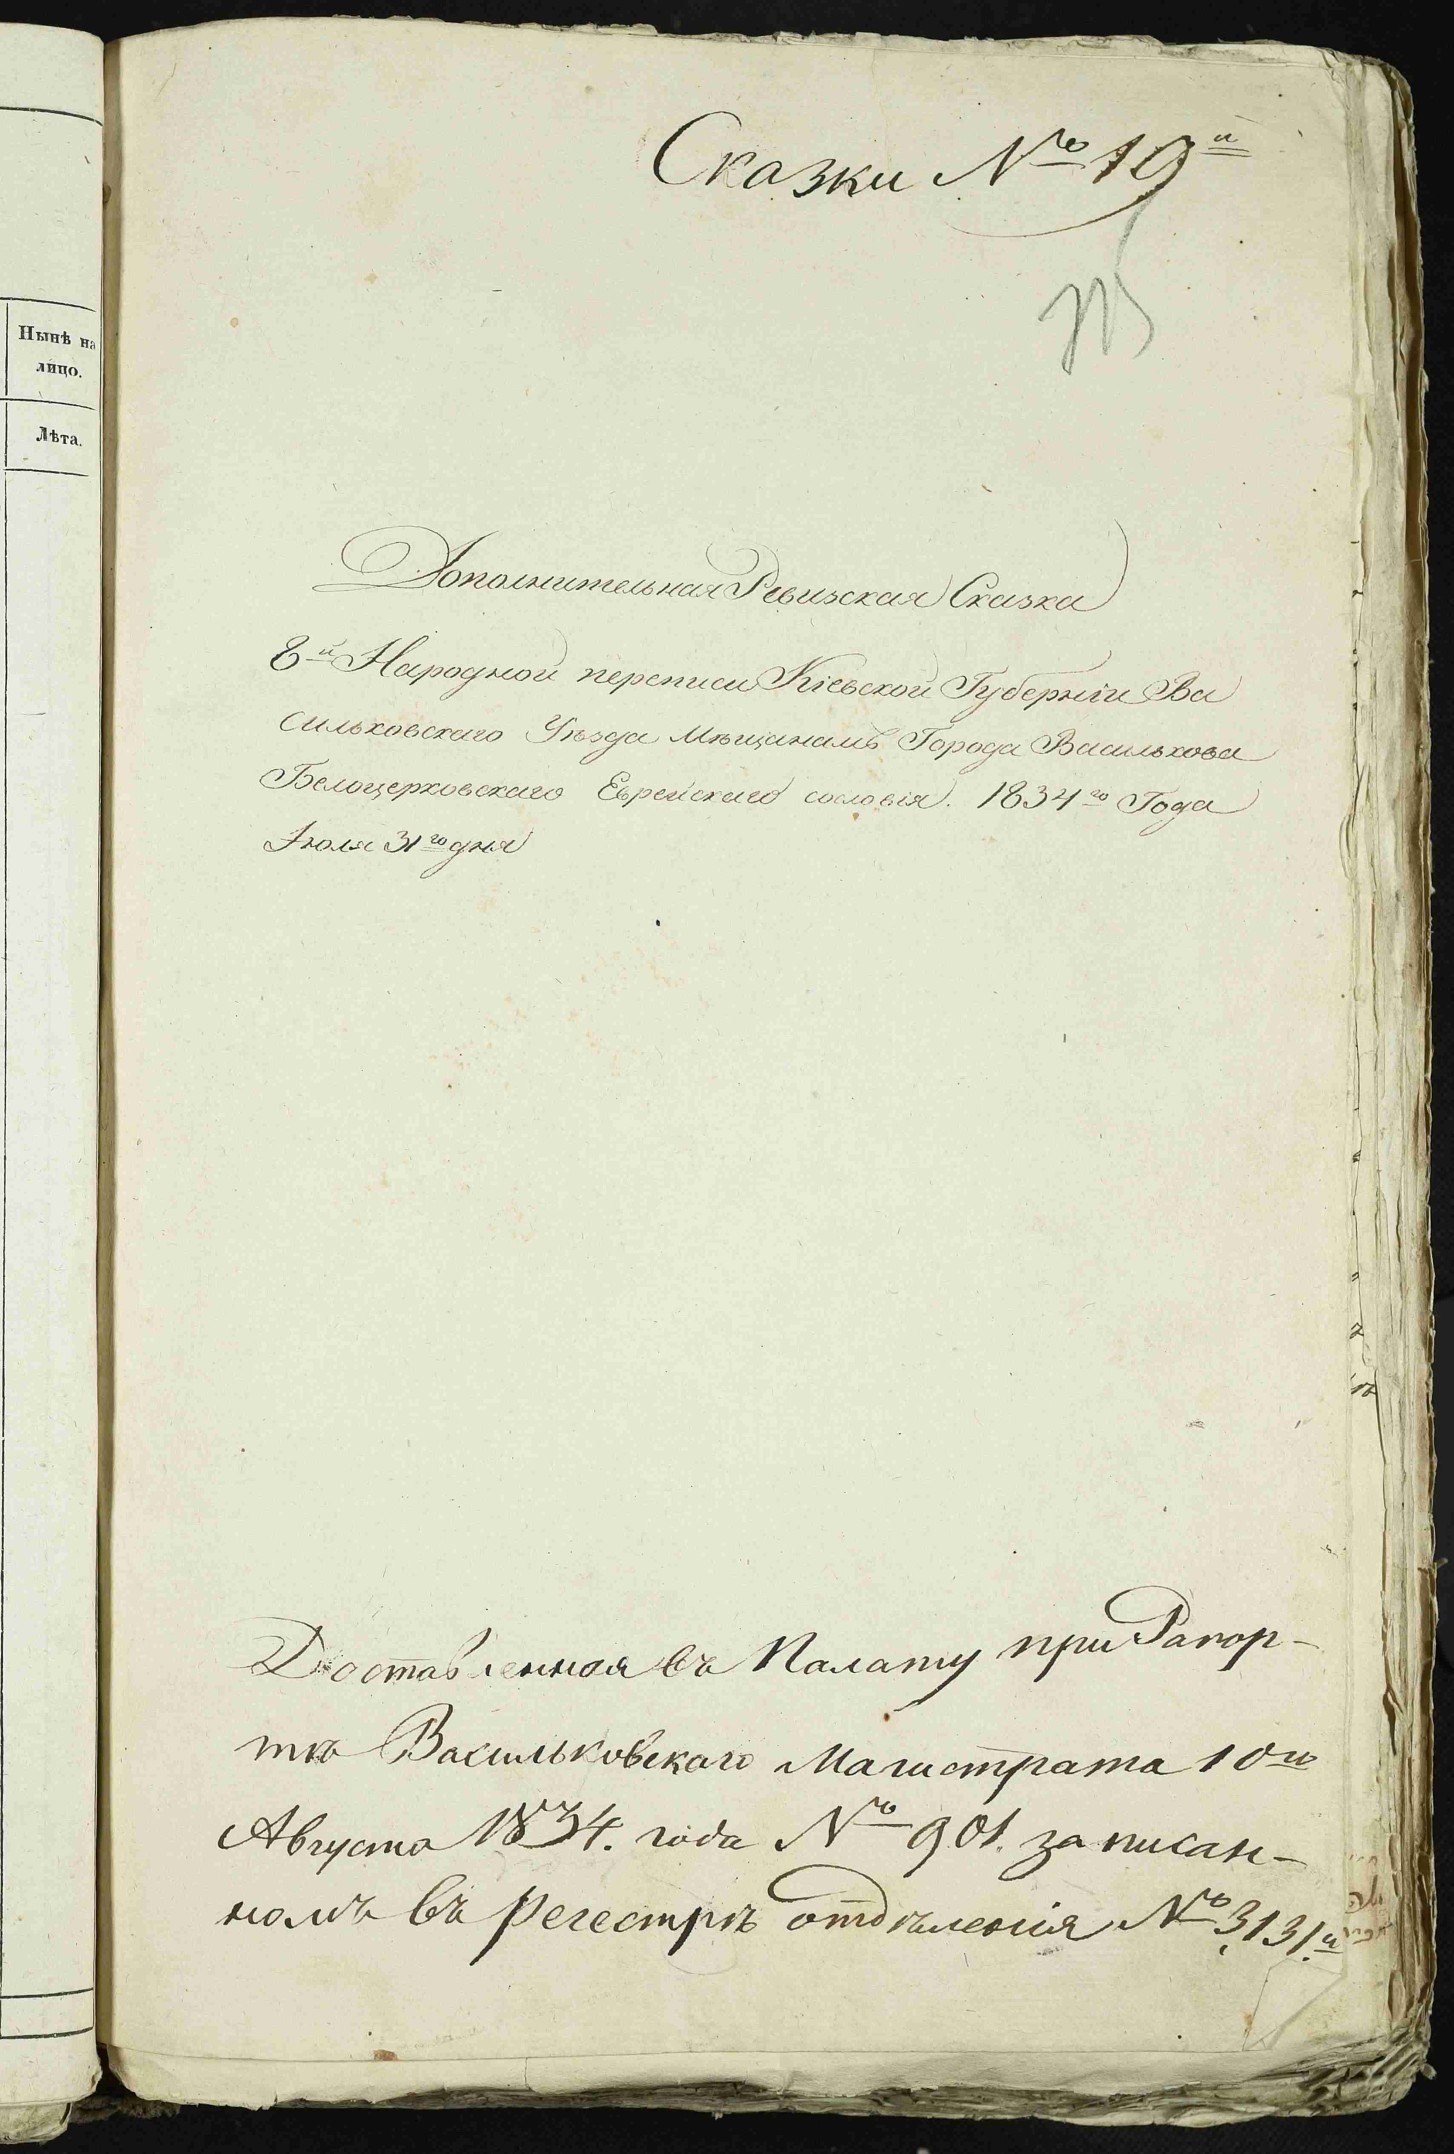 Нынѣ на
лицо.
Лѣта.
Сказки № 19й
Дополнительная Ревизская Сказка
8й Народной переписи Кіевской Губерніи Ва
сильковскаго Уѣзда Мѣщанамъ Города Василькова
Белоцерковскаго Еврейскаго сословія. 1834го Года
Іюля 31го дня
Доставленная въ Палату при Рапор-
тѣ Васильковскаго Магистрата 10го
Августа 1834. года № 901. записан-
номъ въ регестрѣ отдѣленія № 3131й